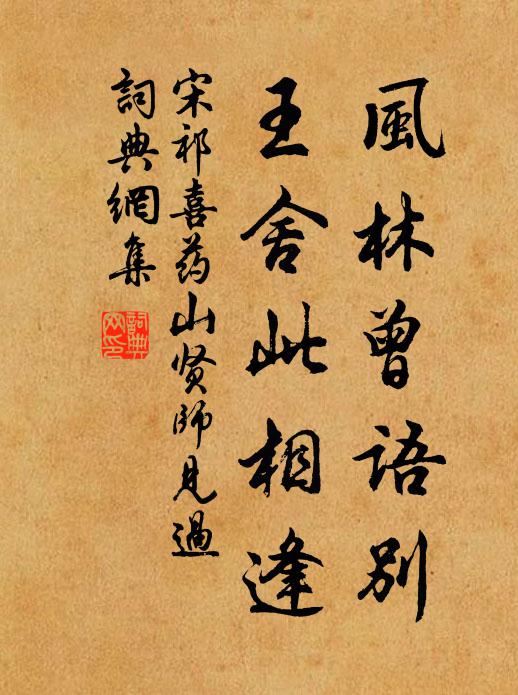 風林曾語別
王舍此相逢
宋祁喜药山贤師見過
詞典網集
詞典網印